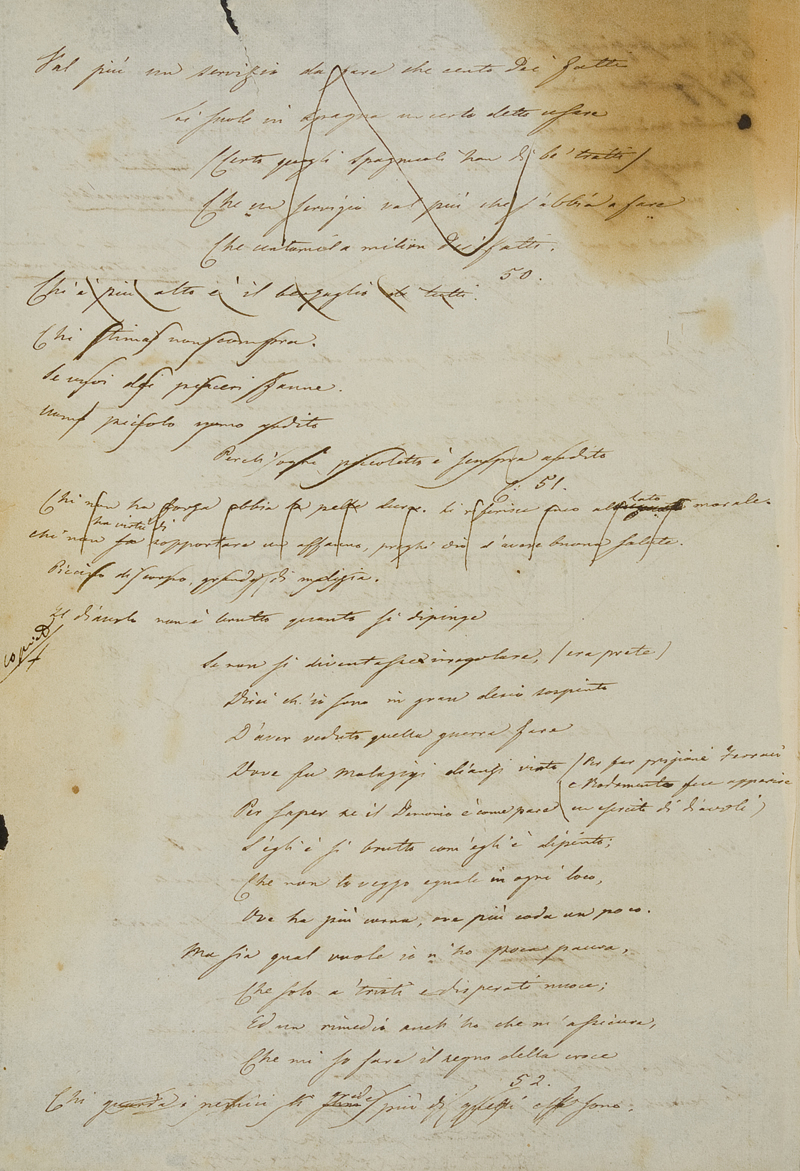 Val più un servigio da fare che cento dei fatti
Si suole in Spagna un certo detto usare
(Certo quegli Spagnuoli han di be' tratti)
Che un servigio val più che s'abbia a fare
Che centomila milion dei fatti.
50.
Chi è più alto è il bersaglio di tutti.
Chi stima non compra.
Se vuoi dei pensieri fanne.
uomo piccolo uomo ardito
Perch' ogni piccoletto è sempre ardito
51.
Chi non ha forza abbia la pelle dura. Si riferisce pure al lato morale.
ha virtù di
chi non sopportare un affanno, preghi Dio d'avere buona salute.
Piccolo di corpo, grande di malizia.
Il diavolo non è brutto quanto si dipinge
copiato
Se non si diventasse irregolare, (era prete)
Direi ch'io sono in gran desio sospinto
D'aver veduto quella guerra fare
Dove fu Malagigi dianzi vinto (Per far prigione Ferraù
e Rodamonte fece apparire
Per saper se il Demonio è come pare un esercito di diavoli)
S'egli è sì brutto com'egli è dipinto;
Che non lo veggo eguale in ogni loco,
Ove ha più corna, ove più coda un poco.
Ma sia qual vuole io n'ho poca paura,
Che solo a' tristi e disperati nuoce;
Ed un rimedio anch'ho che m'assicura,
Che mi so fare il segno della croce
52.
Chi guarda i nemici li crede più di quelli che sono.